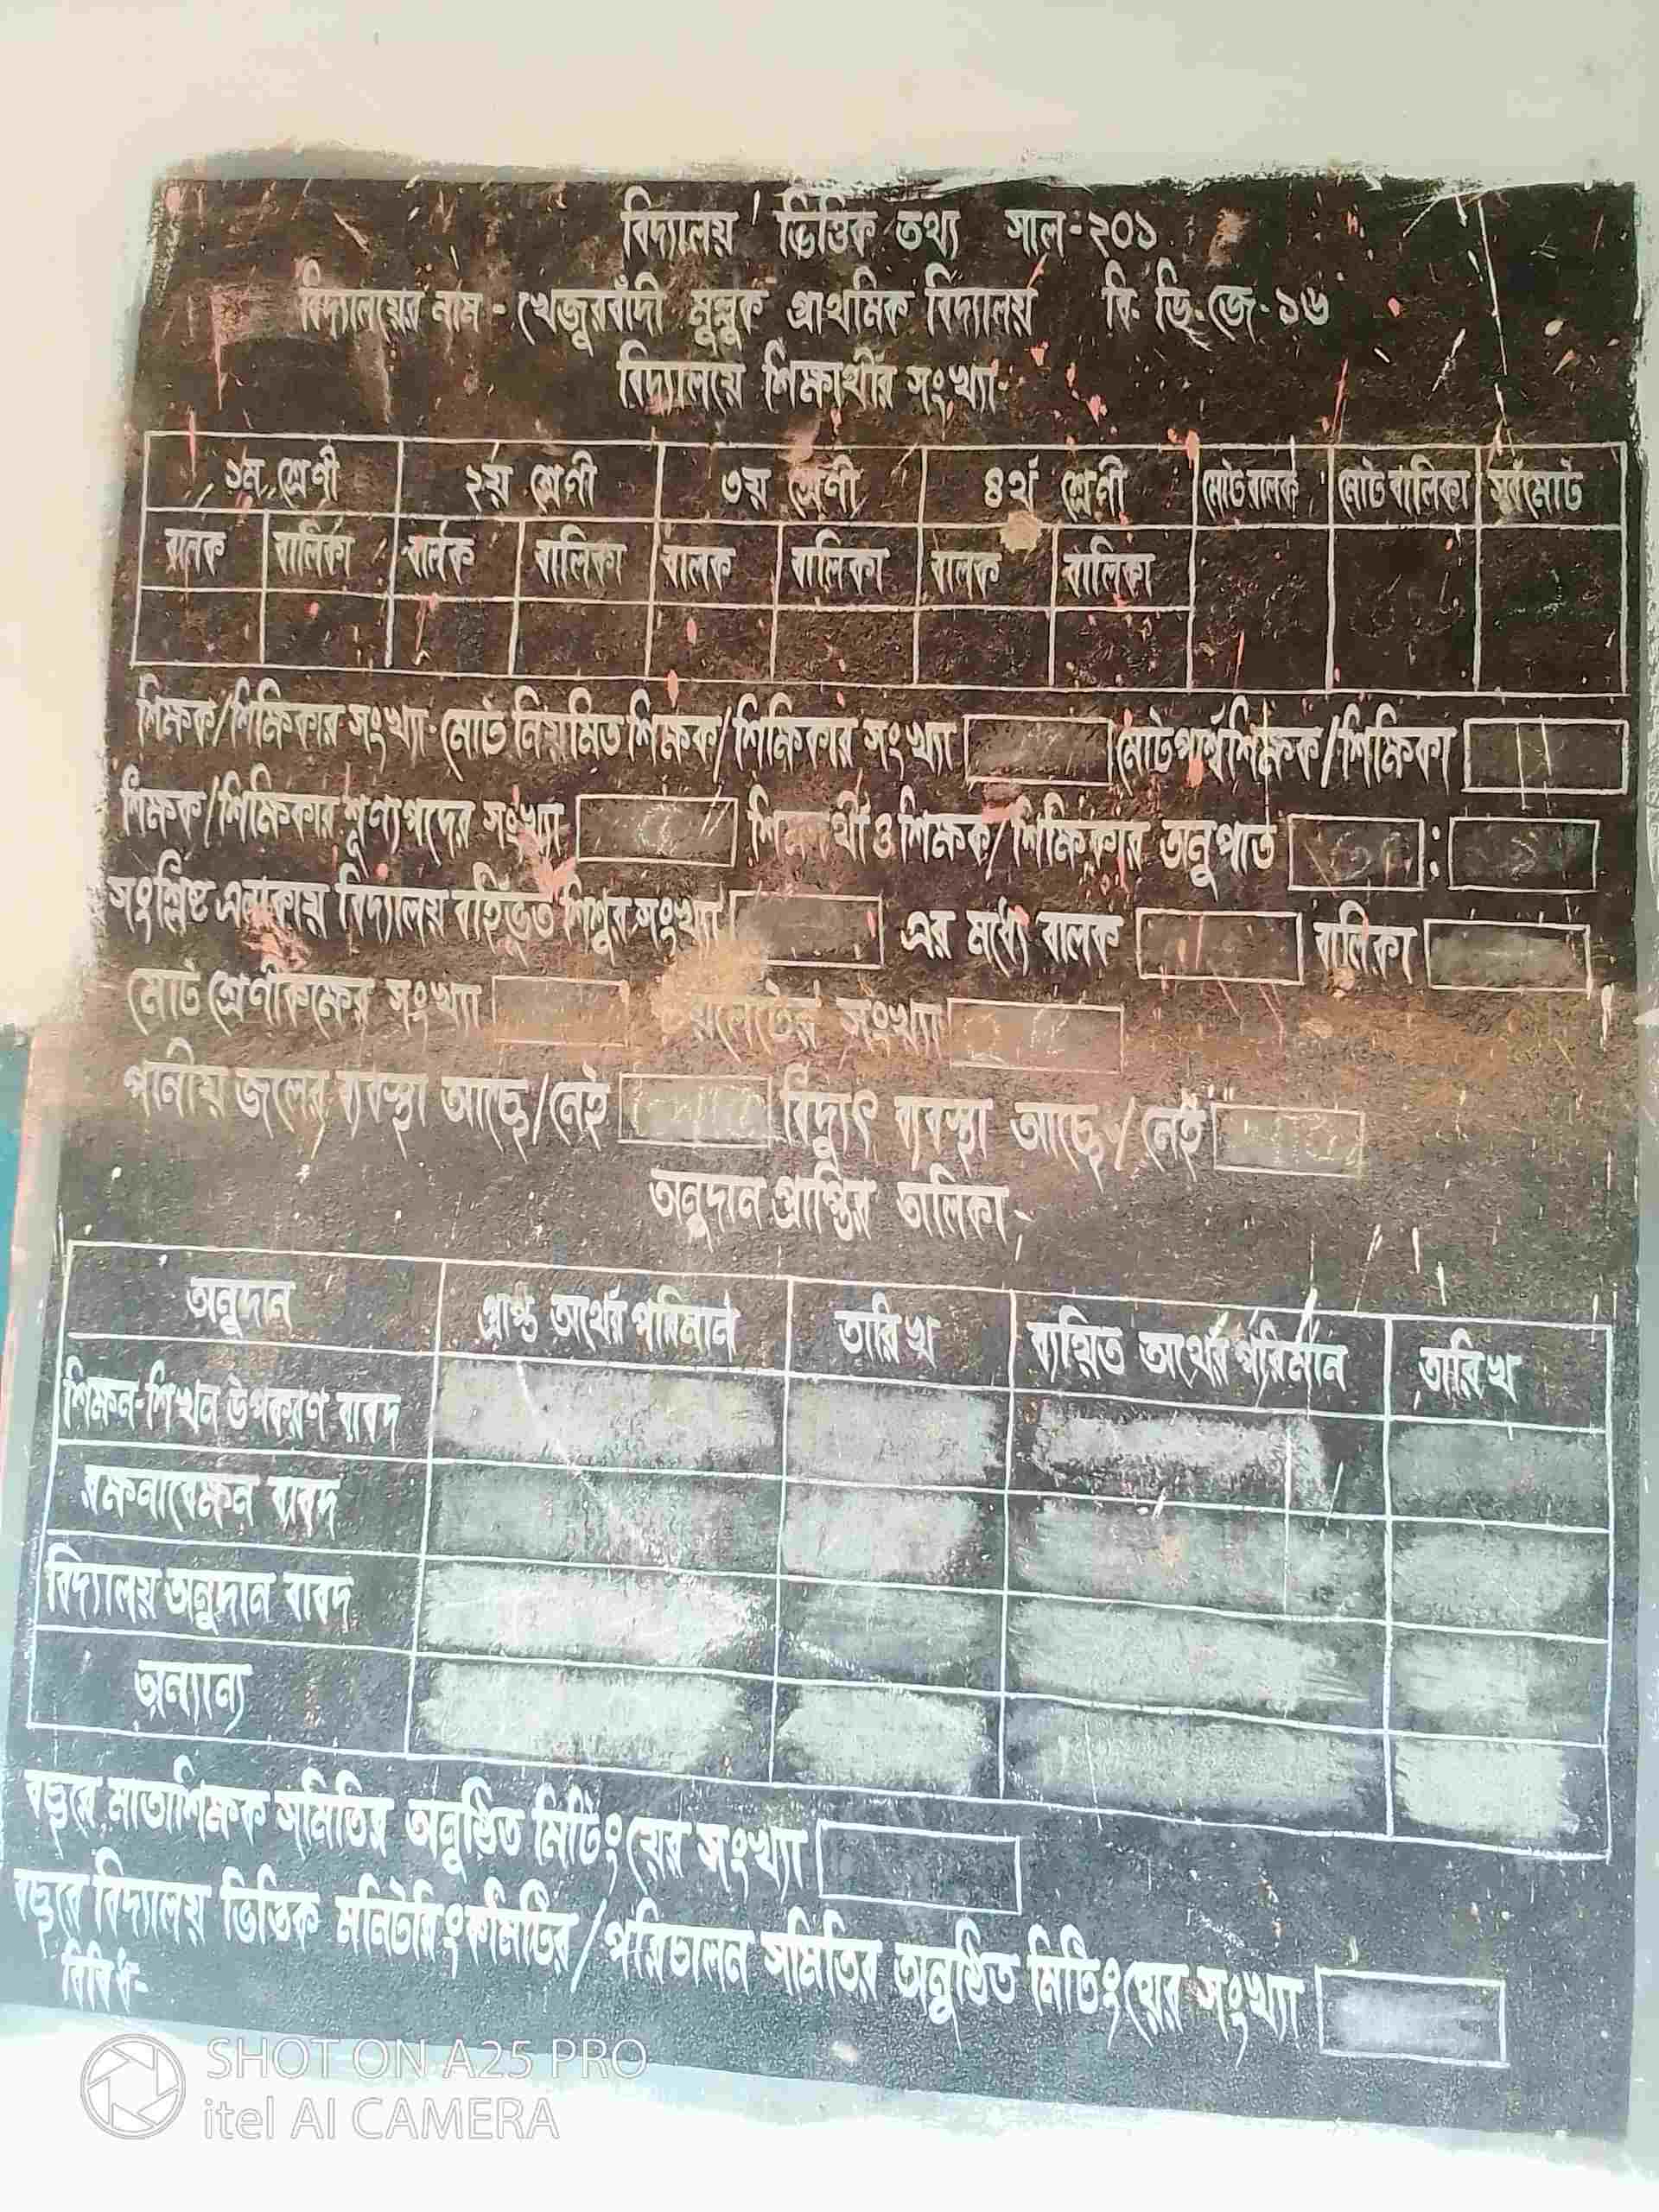 বিদ্যালয় ভিত্তিক তথ্য সাল-২০১
বিদ্যালয়ের নাম - খেজুরবাঁদী মুল্লুক প্রাথমিক বিদ্যালয় বি. ভি. জে-১৬
বিদ্যালয়ে শিক্ষার্থীর সংখ্যা-
১ম শ্রেণী ২য় শ্রেণী ৩য় শ্রেণী ৪র্থ শ্রেণী মোট বালক মোট বালিকা সর্বমোট
বালক বালিকা বালক বালিকা বালক বালিকা বালক বালিকা
শিক্ষক/শিক্ষিকার সংখ্যা- মোট নিয়মিত শিক্ষক/শিক্ষিকার সংখ্যা মোট পার্শ্বশিক্ষক/শিক্ষিকা
শিক্ষক/শিক্ষিকার শূণ্যপদের সংখ্যা শিক্ষার্থী ও শিক্ষক/শিক্ষিকার অনুপাত :
সংশ্লিষ্ট এলাকায় বিদ্যালয় বহির্ভূত শিশুর সংখ্যা এর মধ্যে বালক বালিকা
মোট শ্রেণীকক্ষের সংখ্যা সংখ্যা
পানীয় জলের ব্যবস্থা আছে/নেই বিদ্যুৎ ব্যবস্থা আছে/নেই
অনুদান প্রাপ্তির তালিকা-
অনুদান প্রাপ্ত অর্থের পরিমান তারিখ ব্যয়িত অর্থের পরিমান তারিখ
শিক্ষন-শিখন উপকরণ বাবদ
রক্ষনাবেক্ষন বাবদ
বিদ্যালয় অনুদান বাবদ
অন্যান্য
বছরে মাতাশিক্ষক সমিতির অনুষ্ঠিত মিটিংয়ের সংখ্যা
বছরে বিদ্যালয় ভিত্তিক মনিটরিং কমিটির/পরিচালন সমিতির অনুষ্ঠিত মিটিংয়ের সংখ্যা
বিবিধ-
SHOT ON A25 PRO
itel AI CAMERA